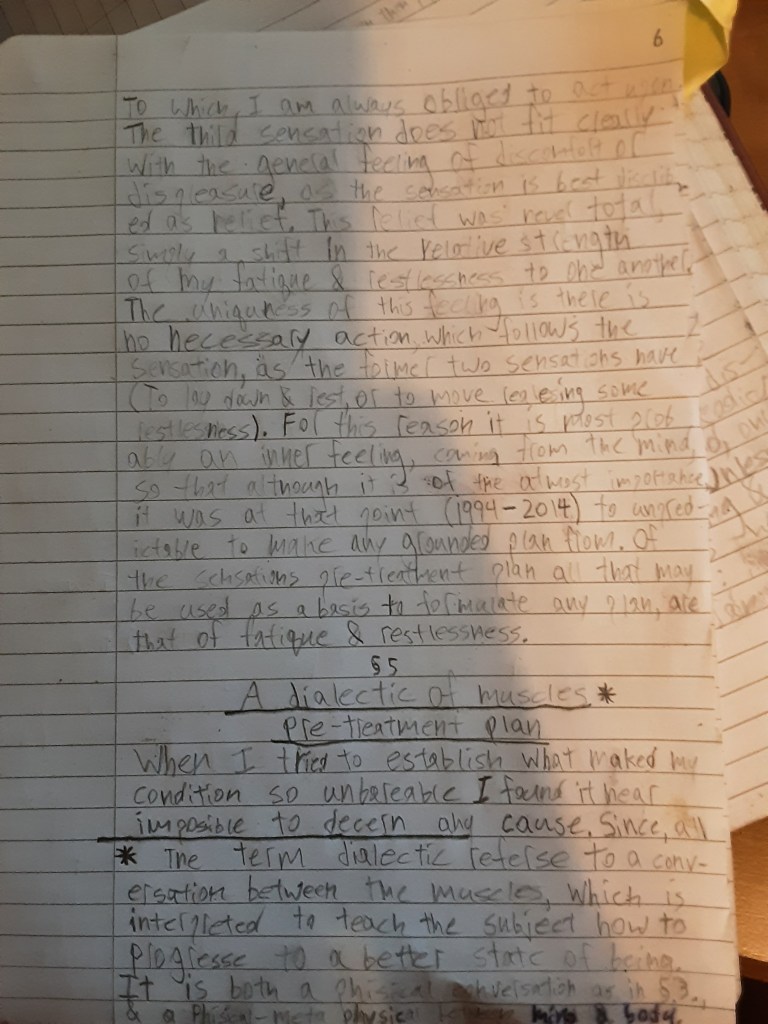 6
To which, I am always obliged to act upon.
The third sensation does not fit clearly
with the general feeling of discomfort or
displeasure, as the sensation is best describ
ed as relief. This relief was never total,
simply a shift in the relative strength
of my fatigue & restlessness to one another.
The uniquness of this feeling is there is
no necessary action, which follows the
sensation, as the former two sensations have
(To lay down & rest, or to move releasing some
restlesness). For this reason it is most prob
ably an inner feeling, coming from the mind,
so that although it is of the atmost importance,
it was at that point (1994-2014) to unpred-
ictable to make any grounded plan from. Of
the sensations pre-treatment plan all that may
be used as a basis to formulate any plan, are
that of fatique & restlessness.
§5
A dialectic of muscles *
Pre-treatment plan
When I tried to establish what maked my
condition so unbareable I found it near
imposible to decern any cause. Since, all
* The term dialectic referse to a conv-
ersation between the muscles, which is
interpreted to teach the subject how to
progresse to a better state of being.
It is both a phisical conversation as in §3.,
& a Phisical-meta physical between mind & body.